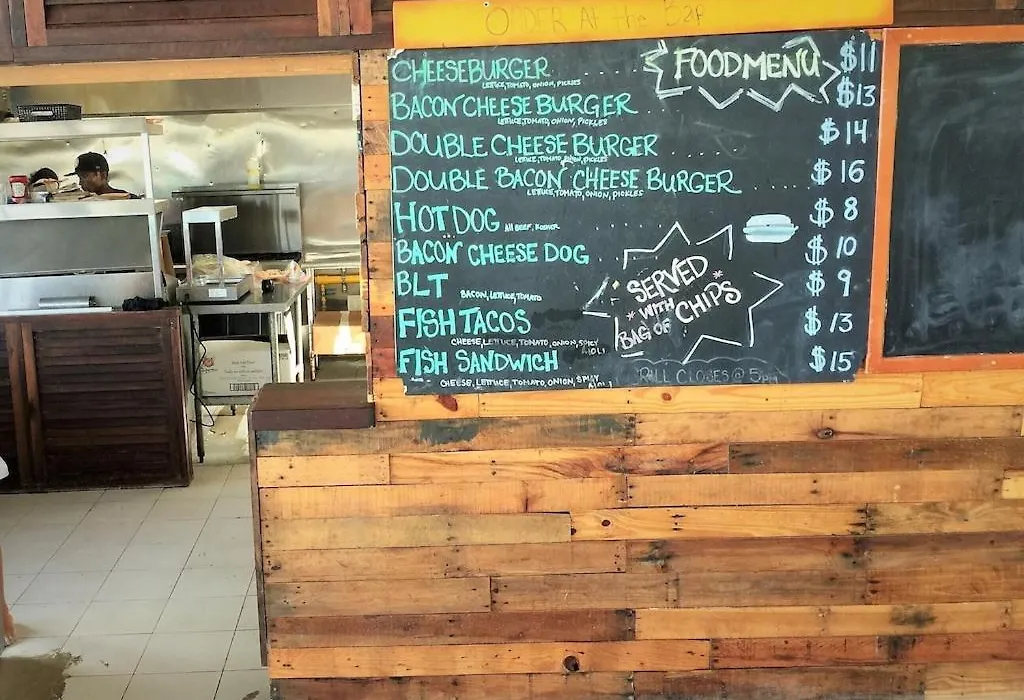 ORDER At the Bar
FOOD MENU
CHEESEBURGER ..... $11
LETTUCE, TOMATO, ONION, PICKLES
BACON CHEESE BURGER $13
LETTUCE, TOMATO, ONION, PICKLES
DOUBLE CHEESE BURGER .... $14
LETTUCE, TOMATO, ONION, PICKLES
DOUBLE BACON CHEESE BURGER ..... $16
LETTUCE, TOMATO, ONION, PICKLES
HOT DOG All BEEF, KOSHER $8
BACON CHEESE DOG $10
BLT BACON, LETTUCE, TOMATO $9
FISH TACOS $13
CHEESE, LETTUCE, TOMATO, ONION, SPICY
AIOLI
FISH SANDWICH $15
CHEESE, LETTUCE, TOMATO, ONION, SPICY
AIOLI
*SERVED*
*WITH*
BAG OF CHIPS
GRILL CLOSES @ 5pm